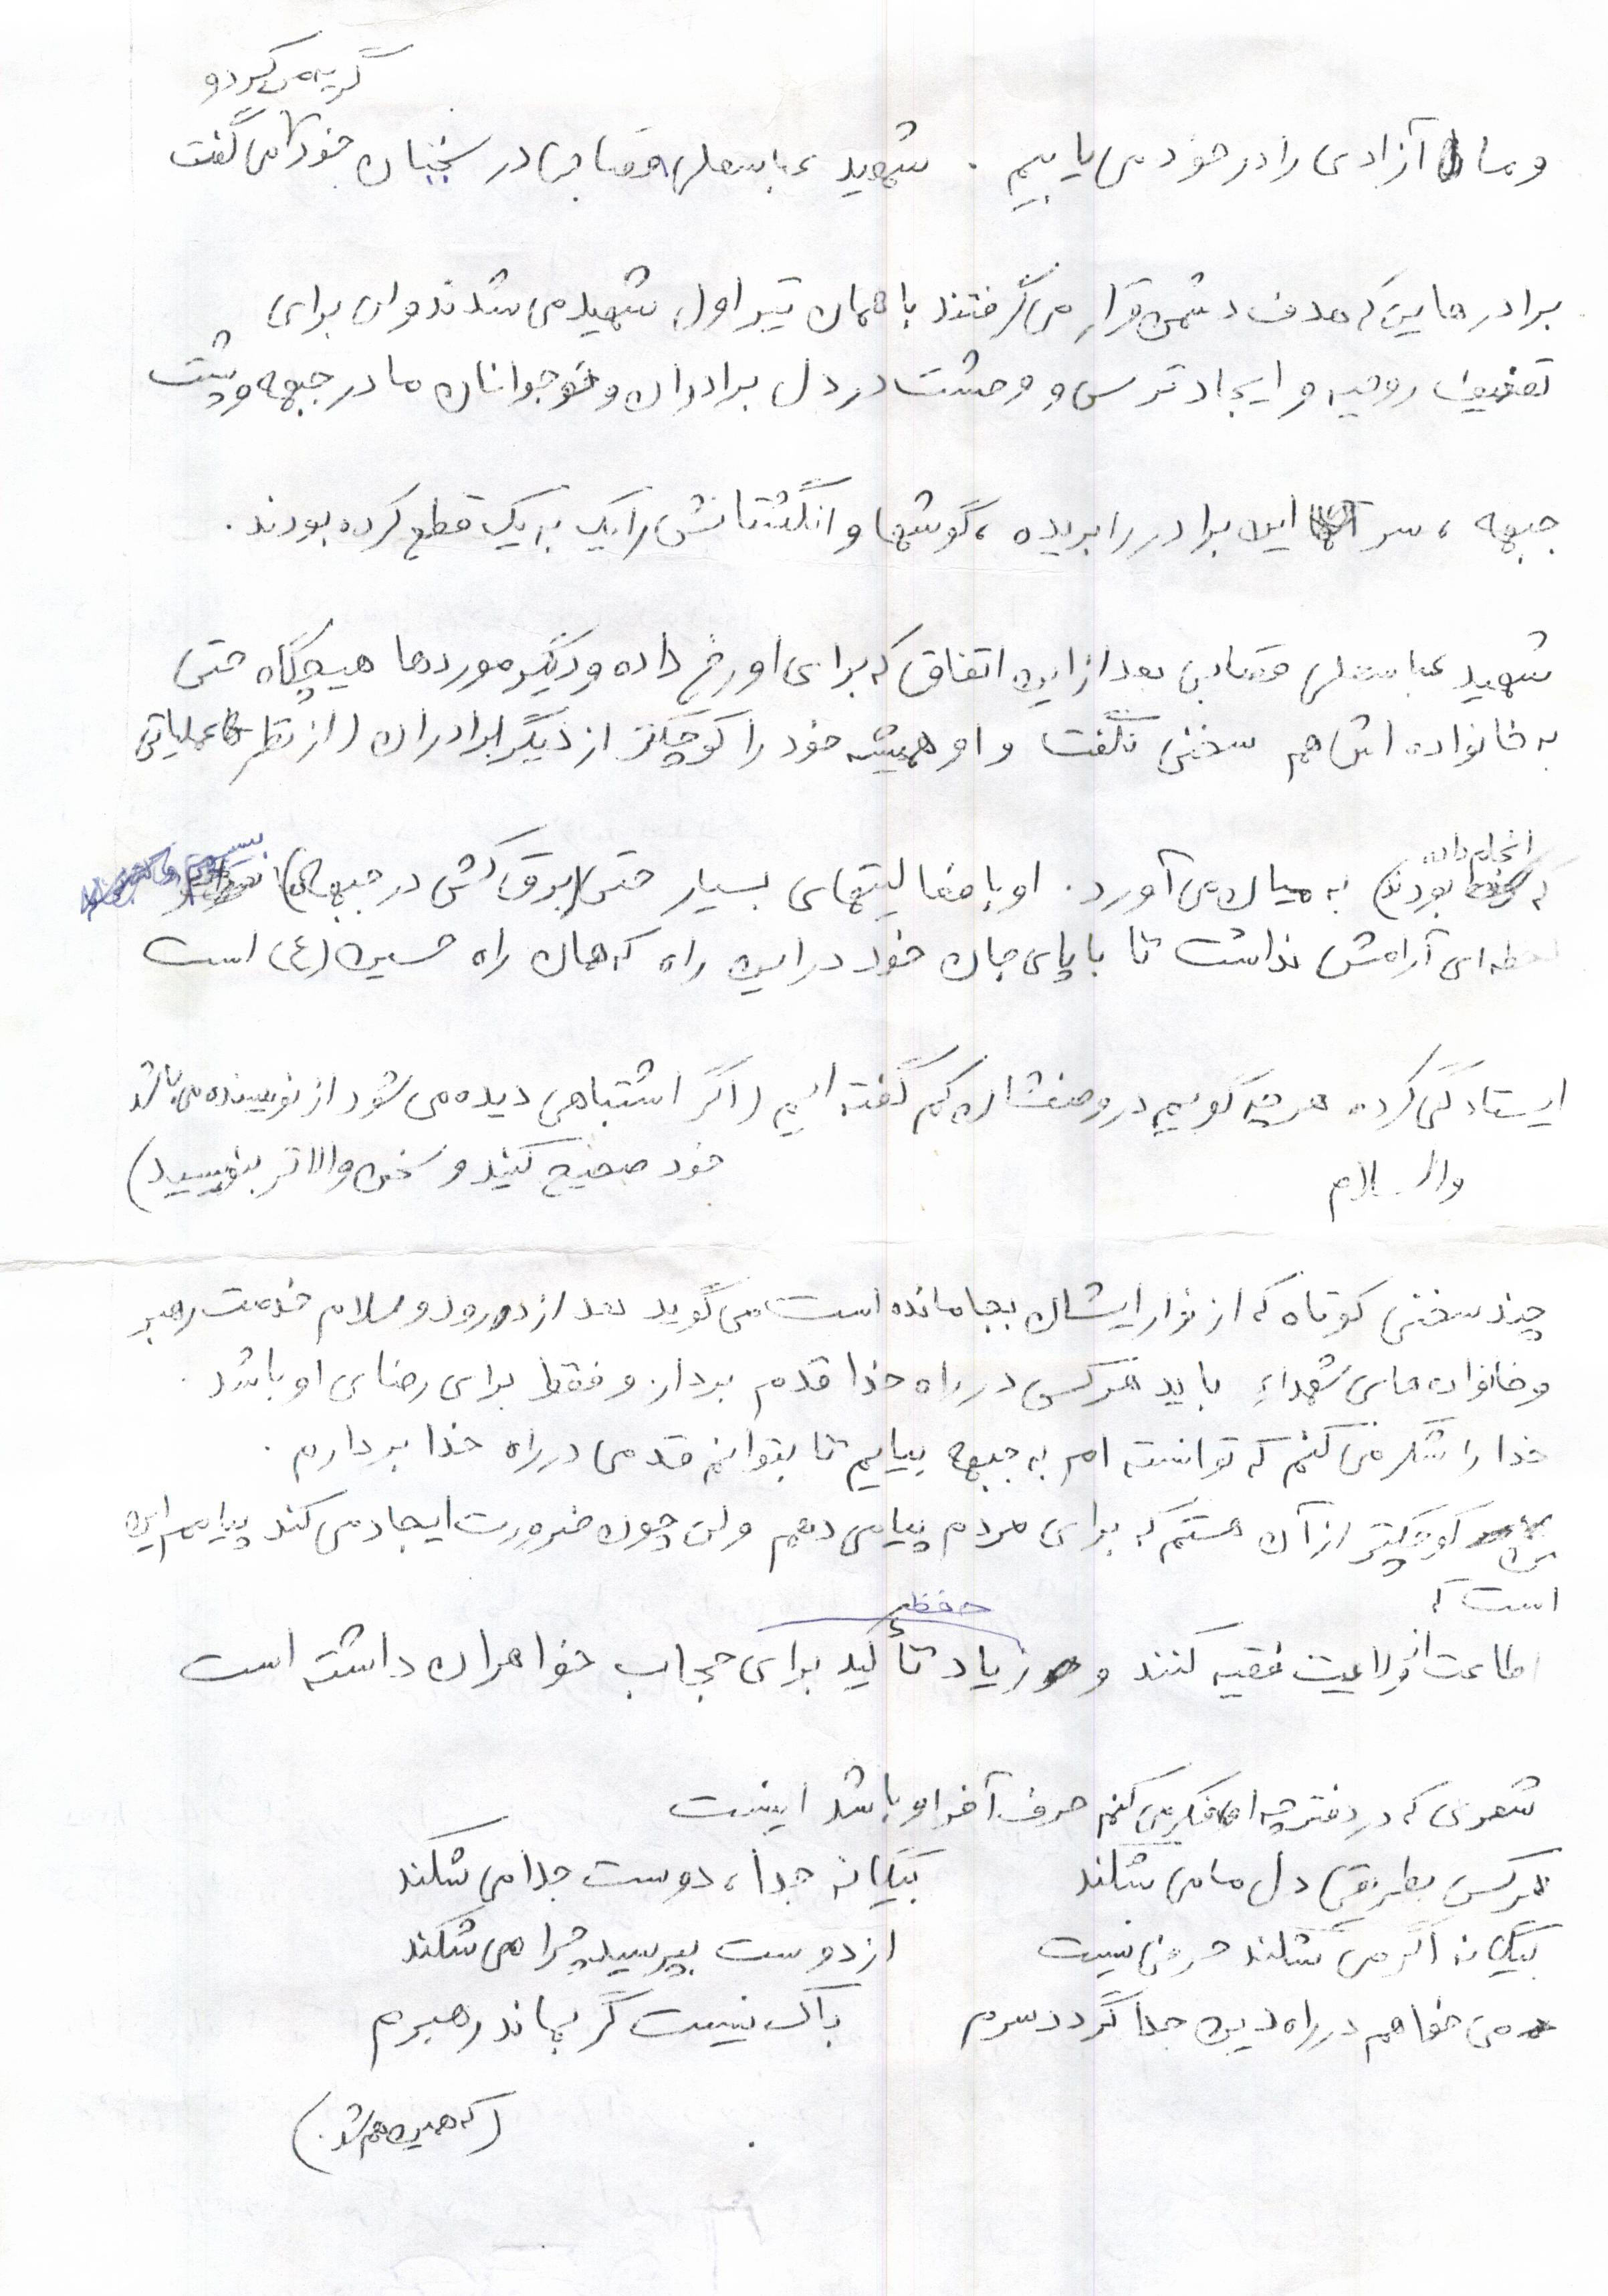 گریه می کرد و
و ما آزادی را در خود می یابیم . شهید عباسعلی قصابی در سخنان خود می گفت
برادرهایی که هدف دشمن قرار می گرفتند با همان تیر اول شهید می شدند ولی برای
تضعیف روحیه و ایجاد ترس و وحشت در دل برادران و نوجوانان ما در جبهه و پشت
جبهه ، سر این برادر را بریده ، گوشها و انگشتانش را یک به یک قطع کرده بودند .
شهید عباسعلی قصابی بعد از این اتفاق که برای او رخ داده و دیگر موردها هیچگاه حتی
به خانواده اش هم سخنی نگفت و او همیشه خود را کوچکتر از دیگر برادران (از نظر عملیاتی
انجام داده
که بودند) به میان می آورد . او با فعالیتهای بسیار حتی (برق کشی در جبهه) بیسیم
لحظه ای آرامش نداشت تا با پای جان خود در این راه که همان راه حسین (ع) است
ایستادگی کرد. هر چه گوییم در وصفشان کم گفته ایم (اگر اشتباهی دیده می شود از نویسنده می باشد
خود صحیح کنید و سخن والاتر بنویسید)
والسلام
چند سخنی کوتاه که از نوار ایشان بجا مانده است می گوید بعد از درود و سلام خدمت رهبر
و خانواده های شهداء باید هر کس در راه خدا قدم بردارد و فقط برای رضای او باشد .
خدا را شکر می کنم که توانسته ام به جبهه بیایم تا بتوانم قدمی در راه خدا بردارم .
من کوچکتر از آن هستم که برای مردم پیامی دهم ولی چون ضرورت ایجاد می کند پیامم این
است که
حفظ
اطاعت از ولایت فقیه کنند و زیاد تأکید برای حجاب خواهران داشته است
شعری که در دفترچه اش فکر می کنم حرف آخر او باشد اینست
هر کس بطریقی دل ما می شکند بیگانه جدا ، دوست جدا می شکند
بیگانه اگر می شکند حرفی نیست از دوست بپرسید چرا می شکند
می خواهم در راه دین جدا گردد سرم باک نیست گر بماند رهبرم
(که همین هم شد .)